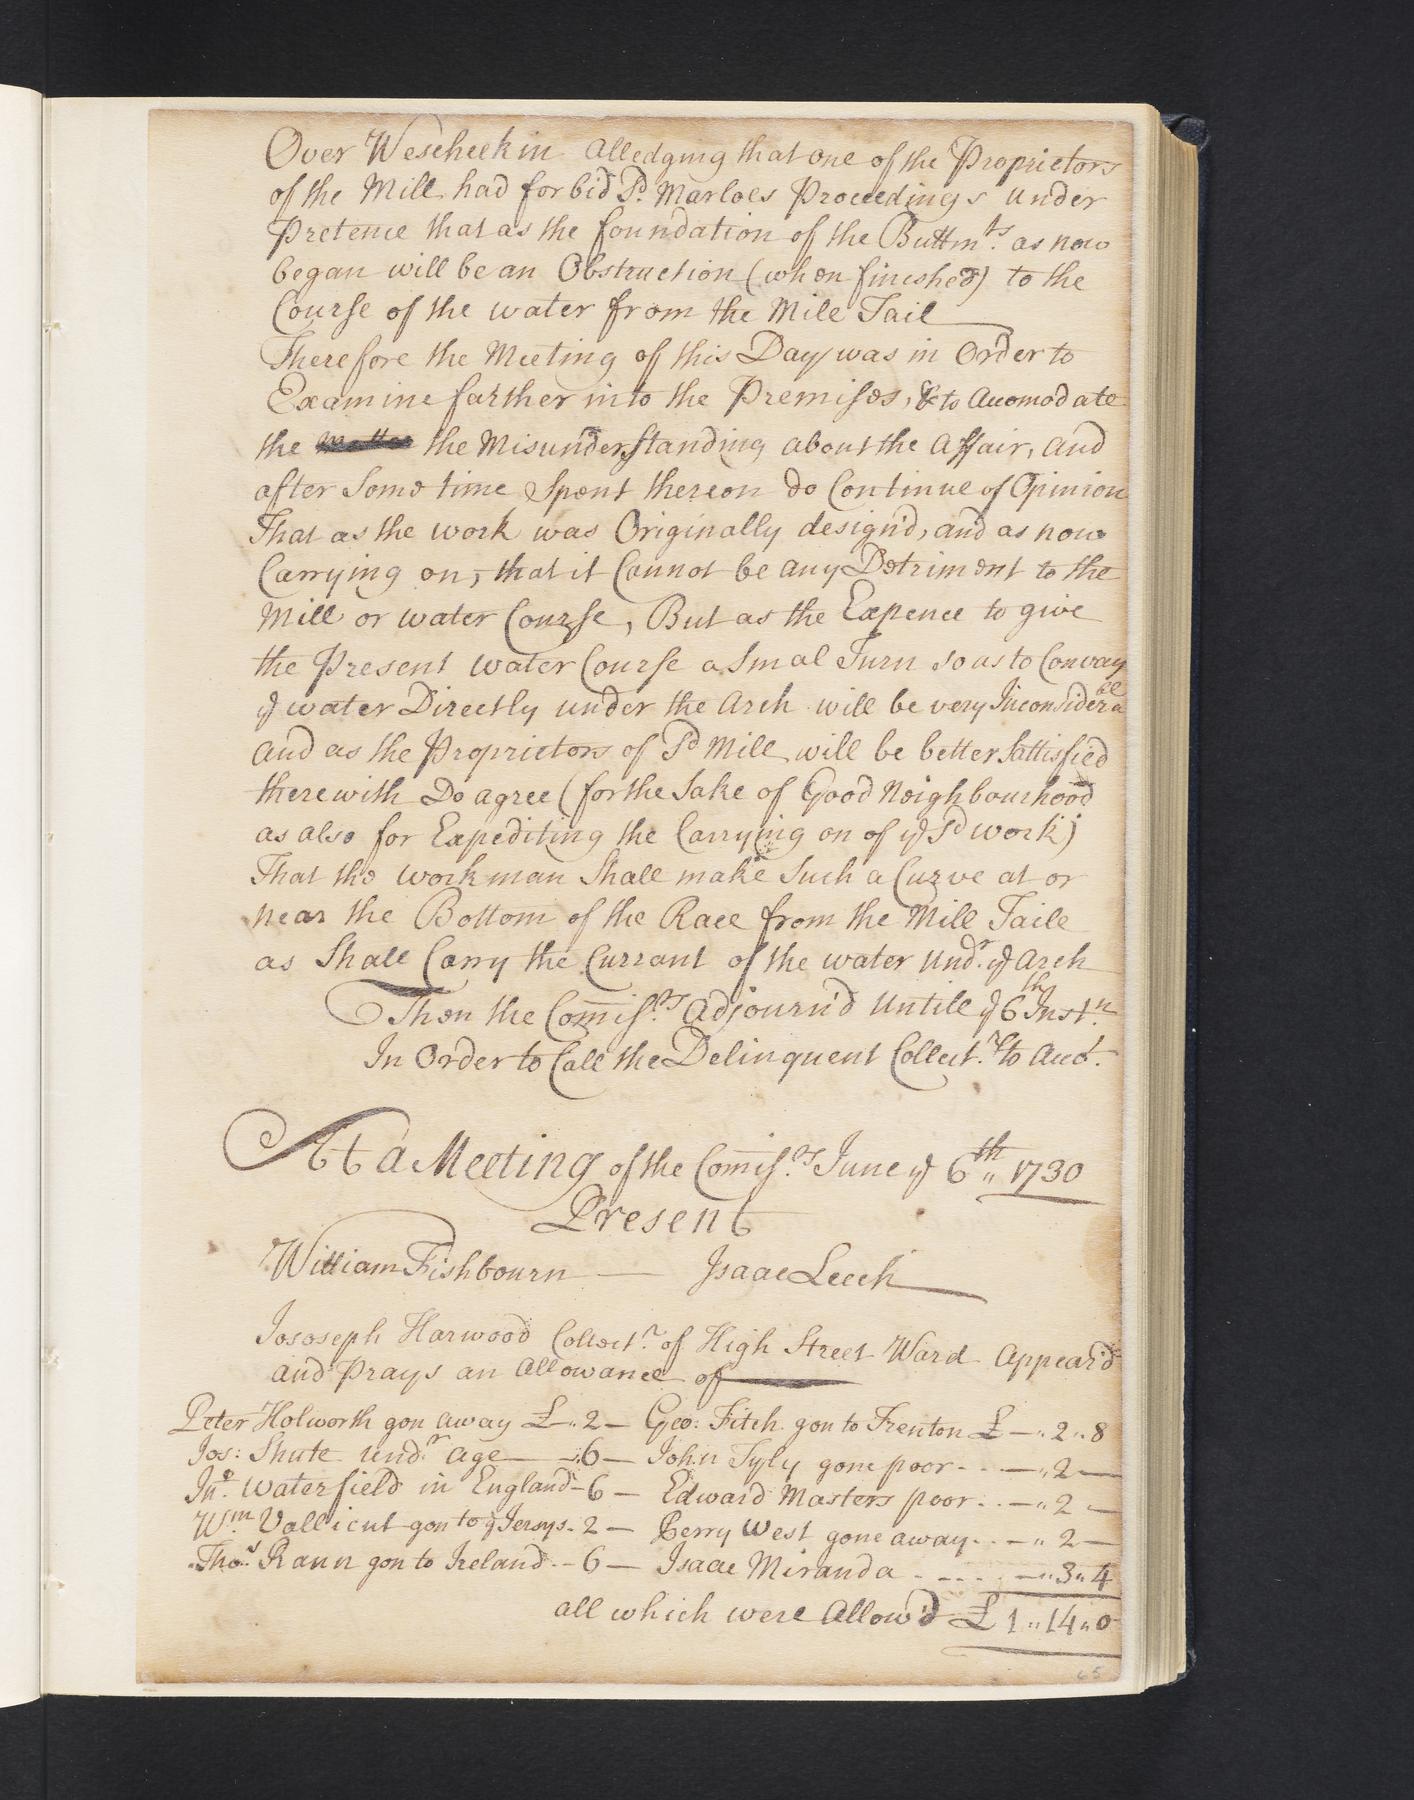 Over Wescheekin alledging that one of the Proprietors
of the Mill had forbid Sd. Marloes Proceedings under
Pretence that as the foundation of the Buttmts. as now
began will be an Obstruction (when finished) to the
Course of the water from the Mill Tail
Therefore the Meeting of this Day was in Order to
Examine farther into the Premises, & to Accomodate
the matter the Misunderstanding about the Affair, and
after Some time Spent thereon do Continue of Opinion
That as the work was Originally design'd, and as now
Carrying on, that it Cannot be any Detriment to the
Mill or water Course, But as the Expence to give
the Present water Course a Smal Turn so as to Convay
ye water Directly under the Arch will be very Inconsiderable
and as the Proprietors of Sd Mill will be better Sattisfied
therewith Do agree (for the Sake of Good Neighbourhood
as also for Expediting the Carrying on of ye Sd work)
That the workman Shall make Such a Curve at or
near the Bottom of the Race from the Mill Taile
as Shall Carry the Currant of the water Undr. ye Arch
Then the Comissrs. Adjourn'd Untile ye 6th Instn.
In Order to Call the Delinquent Collectrs. to Acct.
At a Meeting of the Comissrs. June ye 6th 1730
Present
William Fishbourn — Isaac Leech
Jososeph Harwood Collectr. of High Street Ward Appear'd
and Prays an Allowance of
Peter Holworth gon away £ - " 2 — Geo: Fitch gon to Trenton £ — " 2 " 8
Jos: Shute undr. age — " 6 — John Tyly gone poor - - — " 2 —
Jno. Waterfield in England - 6 — Edward Masters poor - - — " 2 —
Wm. Vallicut gon to ye Jersys - 2 — Berry West gone away - - — " 2 —
Thos. Rann gon to Ireland - - 6 — Isaac Miranda - - - - — " 3 " 4
all which were Allow'd £ 1 " 14 " 0
65